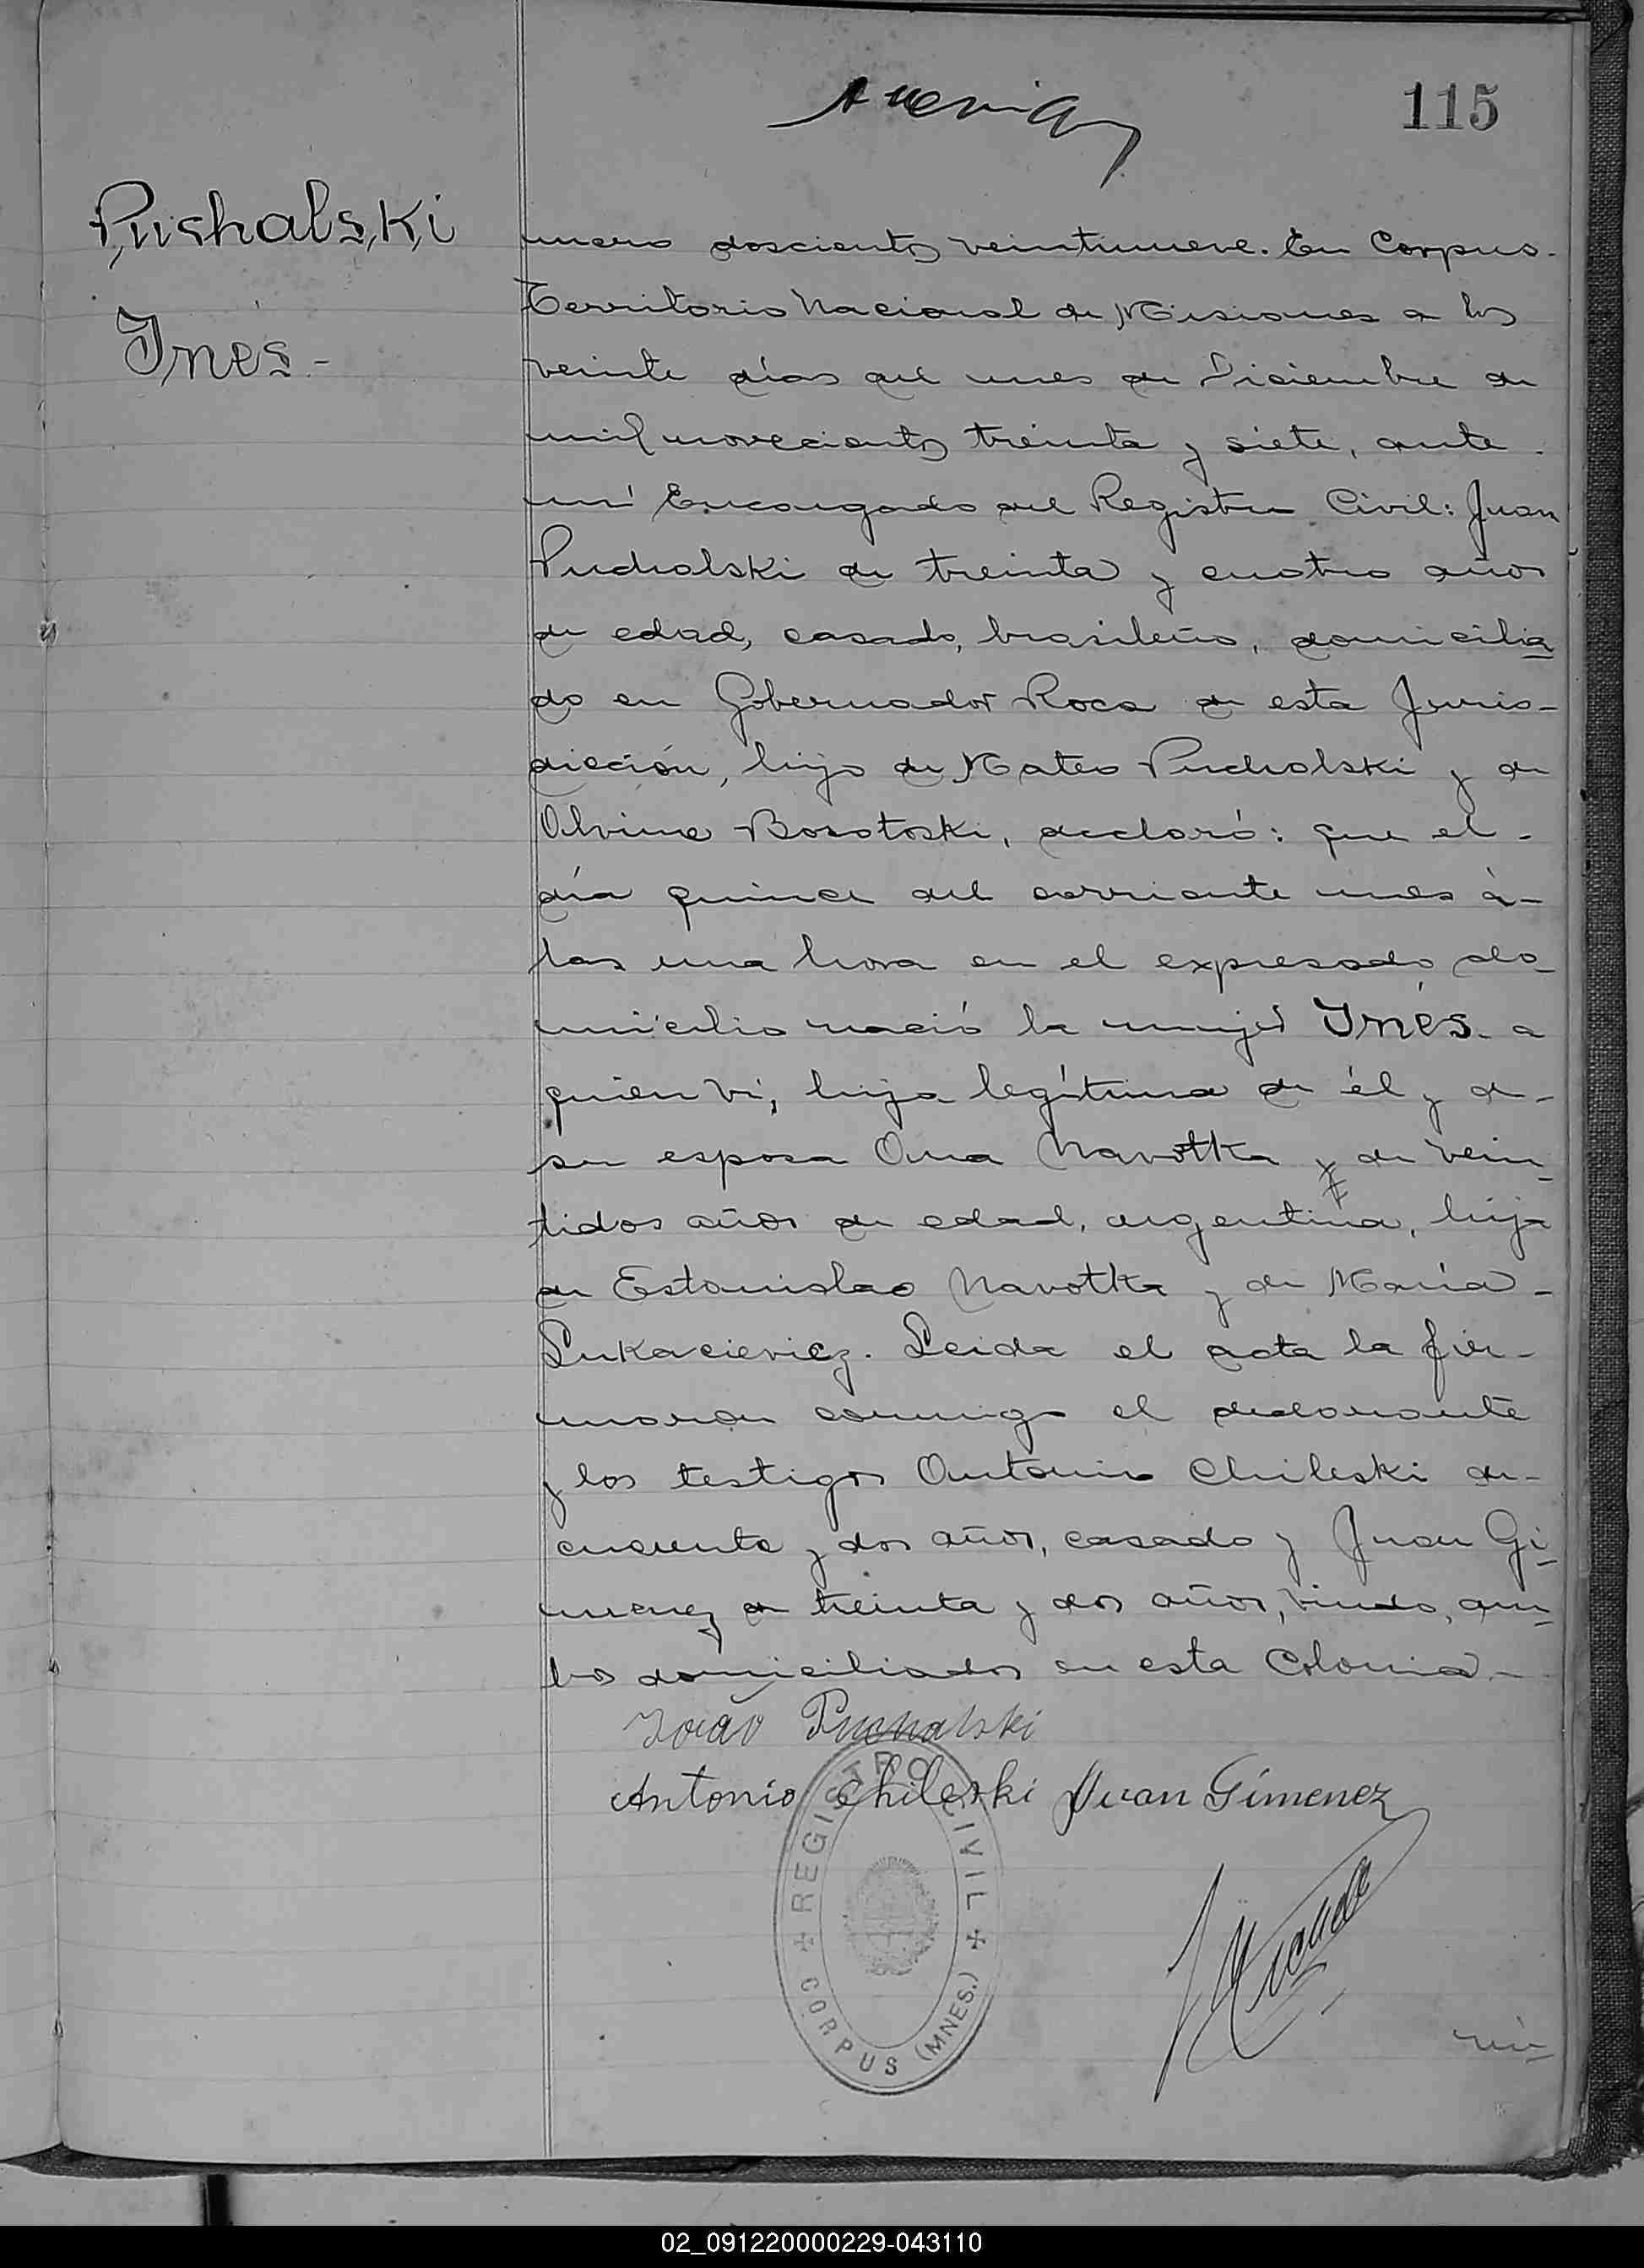 115
Puchalski
Inés-
mero doscientos veintinueve. En Corpus.
Territorio Nacional de Misiones a los
veinte días del mes de Diciembre de
mil novecientos treinta y siete, ante
mí Encargado del Registro Civil: Juan
Puchalski de treinta y cuatro años
de edad, casado, brasileño, domicilia
do en Gobernador Roca de esta Juris-
dicción, hijo de Mateo Puchalski y de
Olvina Bosotoski, declaró: que el-
día quince del corriente mes à-
las una hora en el expresado do-
micilio nació la mujer Inés- a
quien ví, hija legítima de él y de-
su esposa Ana Navotka de vein
tidos años de edad, argentina, hija
de Estanislao Navotka y de María-
Lukacievicz. Leida el acta la fir-
maron conmigo el declarante
y los testigos Antonio Chileski de-
cuarenta y dos años, casado y Juan Gi-
menez de treinta y dos años, viudo, am
bos domiciliados en esta Colonia-
João Puchalski
Antonio Chileski Juan Gimenez
REGISTRO CIVIL
CORPUS (MNES.)
nú-
02_091220000229-043110